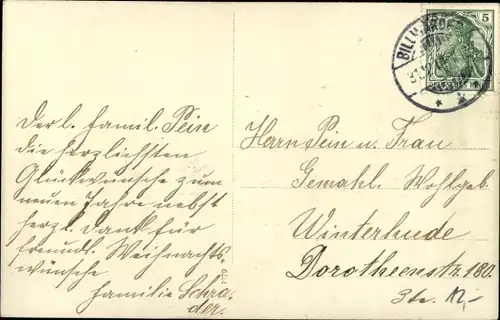 Der l. Famil. Pein
die herzlichsten
Glückwünsche zum
neuen Jahre nebst
herzl. Dank für
freundl. Weihnachts-
wünsche
Familie Schra-
der.
Herrn Pein u. Frau
Gemahl. Wohlgeb.
Winterhude
Dorotheenstr. 180.
3te.
5
BILLWÄRDER